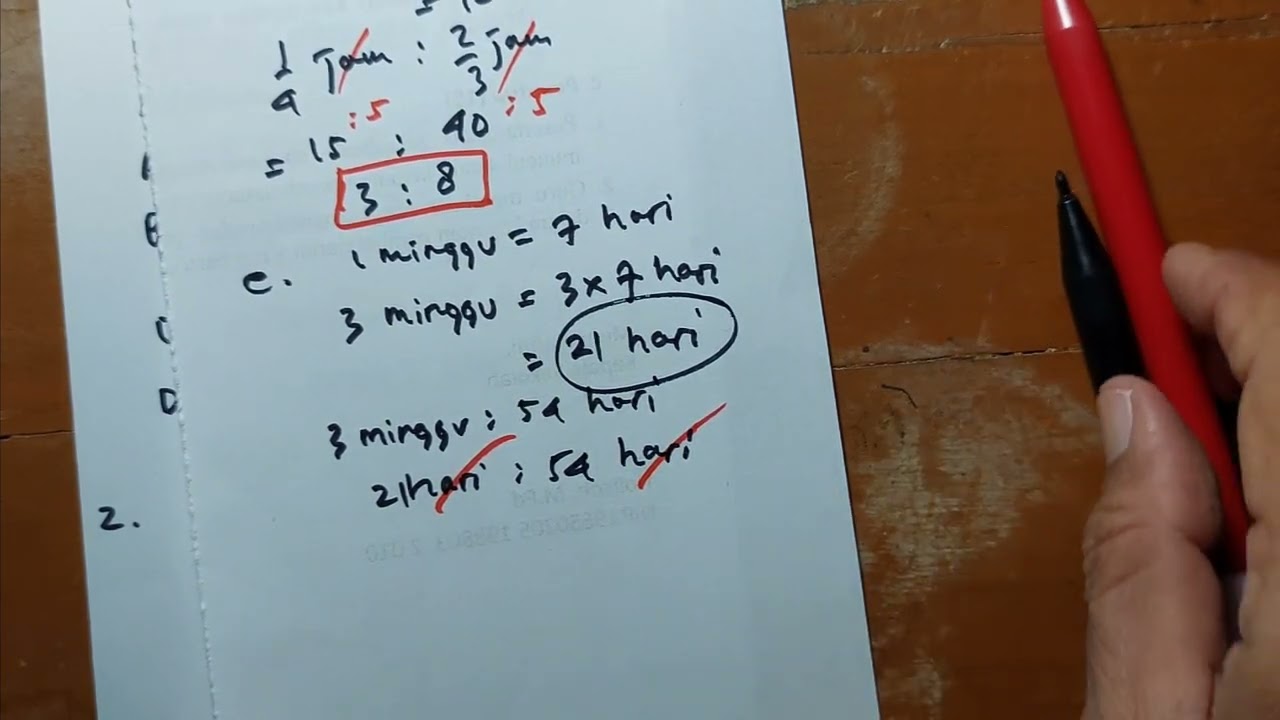 1/4 Jam : 2/3 Jam
:5 :5
= 15 : 40
3 : 8
e. 1 minggu = 7 hari
3 minggu = 3 x 7 hari
= 21 hari
3 minggu : 54 hari
21 hari : 54 hari
2.